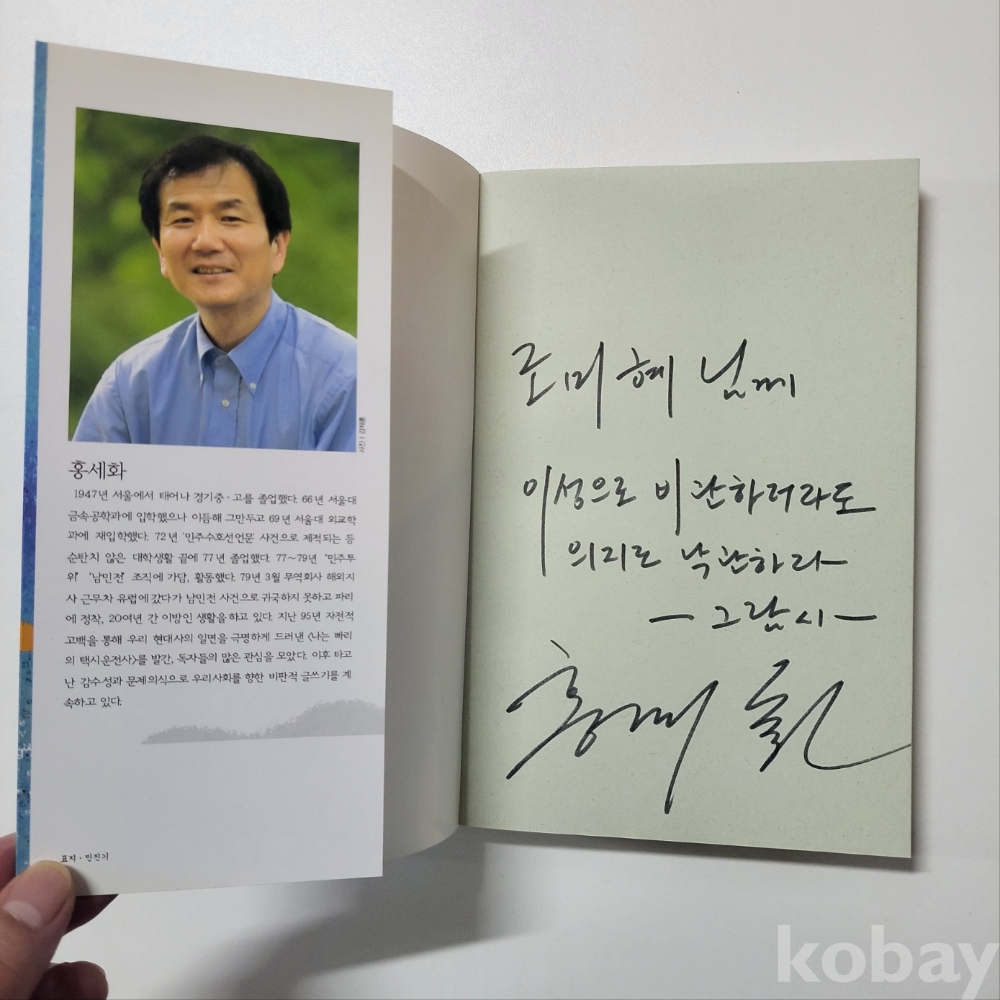 사진 | 강재훈
홍세화
1947년 서울에서 태어나 경기중·고를 졸업했다. 66년 서울대
금속공학과에 입학했으나 이듬해 그만두고 69년 서울대 외교학
과에 재입학했다. 72년 '민주수호선언문' 사건으로 제적되는 등
순탄치 않은 대학생활 끝에 77년 졸업했다. 77~79년 "민주투
위" "남민전" 조직에 가담, 활동했다. 79년 3월 무역회사 해외지
사 근무차 유럽에 갔다가 남민전 사건으로 귀국하지 못하고 파리
에 정착, 20여년 간 이방인 생활을 하고 있다. 지난 95년 자전적
고백을 통해 우리 현대사의 일면을 극명하게 드러낸 〈나는 빠리
의 택시운전사〉를 발간, 독자들의 많은 관심을 모았다. 이후 타고
난 감수성과 문제의식으로 우리사회를 향한 비판적 글쓰기를 계
속하고 있다.
표지·민진기
미혜 님께
이성으로 비관하더라도
의지로 낙관하라
- 그람시 -
홍세화
kobay